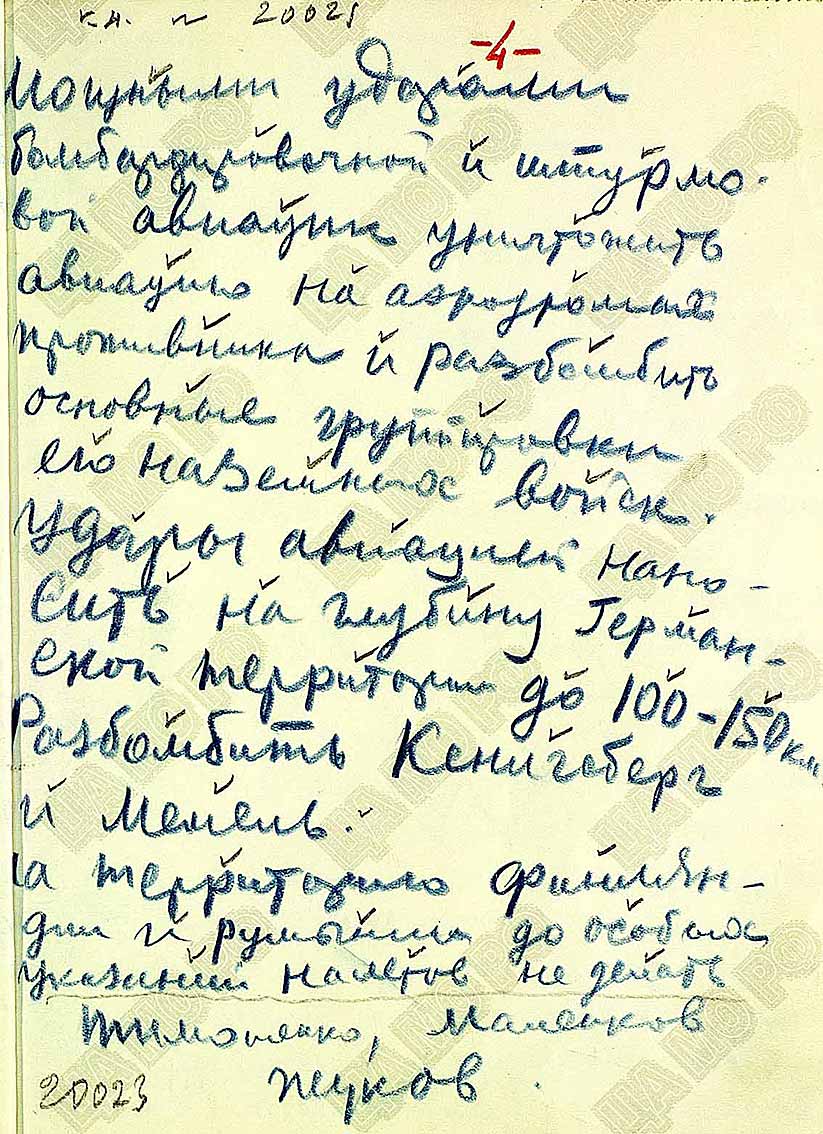 к.н. № 20021
-4-
Мощными ударами
бомбардировочной и штурмо-
вой авиации уничтожить
авиацию на аэродромах
противника и разбомбить
основные группировки
его наземных войск.
Удары авиацией нано-
сить на глубину Герман-
ской территории до 100-150 км.
Разбомбить Кенигсберг
и Мемель.
На территорию Финлян-
дии и Румынии до особых
указаний налетов не делать
Тимошенко, Маленков
Жуков.
20023
ЦАМО РФ